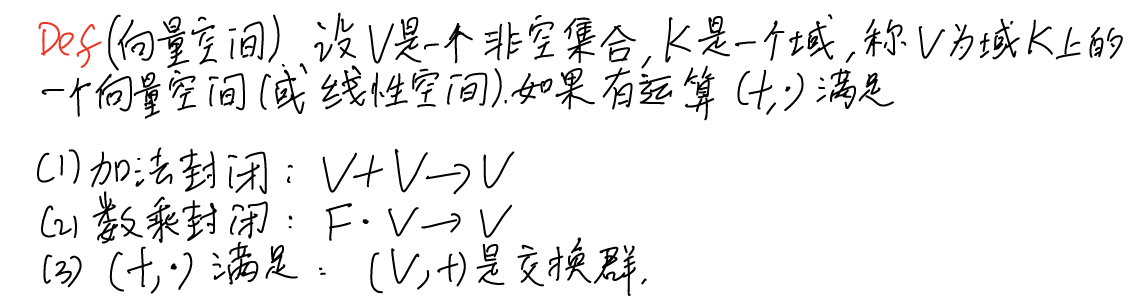 Def(向量空间). 设V是一个非空集合, K是一个域, 称V为域K上的
一个向量空间(或线性空间).如果有运算 (+,·) 满足
(1) 加法封闭: V+V→V
(2) 数乘封闭: F·V→V
(3) (+,·) 满足: (V,+)是交换群.